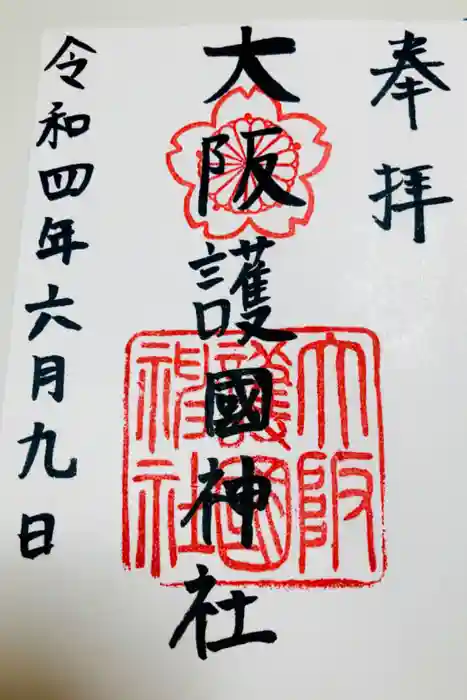 奉拝
大阪護國神社
大阪
護國
神社
令和四年六月九日